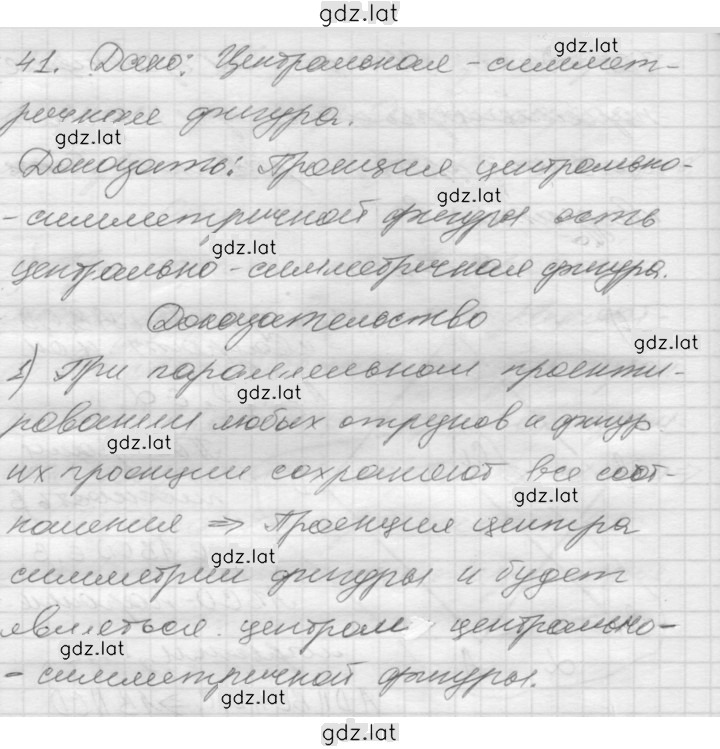 gdz.lat
gdz.lat
41. Дано: Центральная-симмет-
ричная фигура.
gdz.lat
Доказать: Проекция центрально-
gdz.lat
-симметричной фигуры есть
gdz.lat
центрально-симметричная фигура.
Доказательство
gdz.lat
1) При параллельном проекти-
gdz.lat
ровании любых отрезков и фигур
gdz.lat
их проекции сохраняют все соот-
gdz.lat
ношения ⇒ Проекция центра
gdz.lat
симметрии фигуры и будет
являеться центром центрально-
gdz.lat
-симметричной фигуры.
gdz.lat
gdz.lat